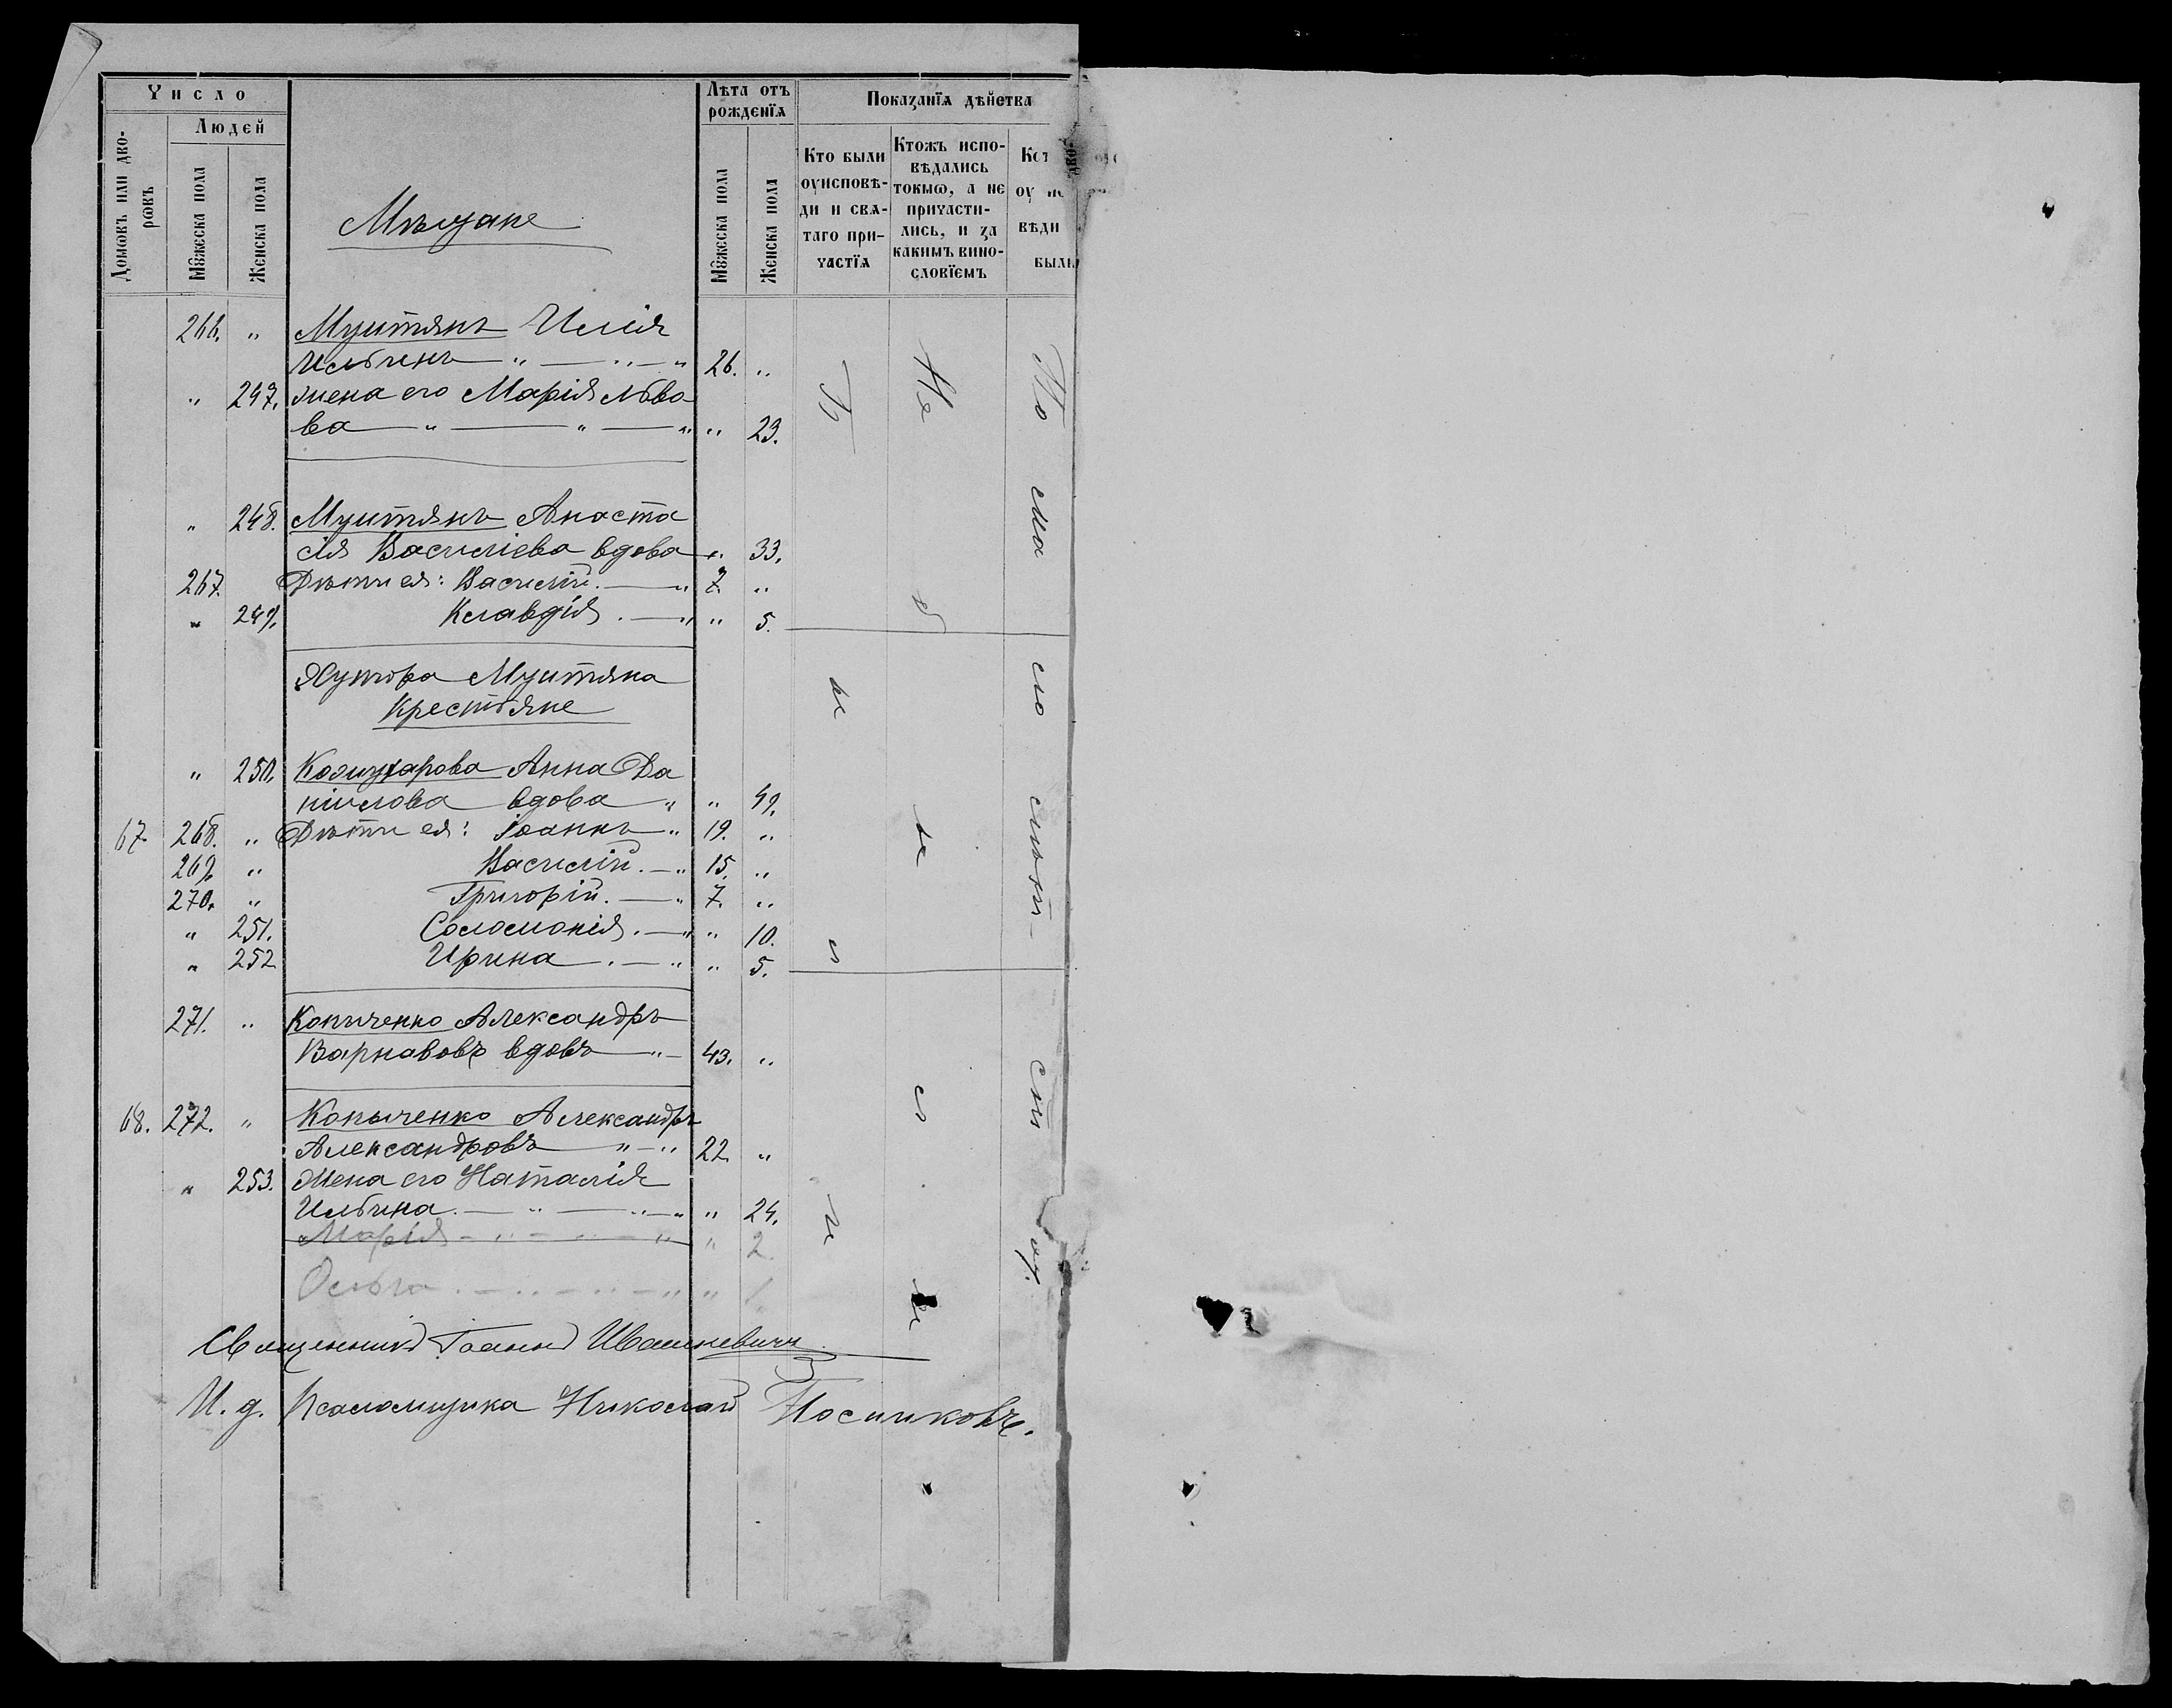 Число
Лѣта отъ рожденїѧ
Показанїѧ дѣйства
Людей
Домѡвъ или дворѡвъ
Мꙋжеска пола
Женска пола
Мꙋжеска пола
Женска пола
Кто были оуисповѣди и свѧтаго причастїѧ
Ктожъ исповѣдались токмѡ, а не причастились, и за какимъ винословїемъ
Мѣщане
266. „ Мунтянъ Илія
Ильинъ „ — „ — „ 26. „
„ 247. жена его Марія Льво
ва — „ — „ — „ „ 23.
„ 248. Мунтянъ Анаста
сія Василіева вдова „ 33.
267. Дѣти ея: Василій. — „ 7. „
„ 249. Клавдія. — „ „ 5.
Хутора Мунтяна
Крестьяне
„ 250. Кожухарова Анна Да
ніилова вдова „ „ 49.
67. 268. „ Дѣти ея: Іоаннъ „ 19. „
269. „ Василій. — „ 15. „
270. „ Григорій. — „ 7. „
„ 251. Соломонія. — „ „ 10.
„ 252. Ирина. — „ „ 5.
271. „ Копыченко Александръ
Варнавовъ вдовъ — „ — 43. „
68. 272. „ Копыченко Александръ
Александровъ „ — „ 22. „
„ 253. Жена его Наталія
Ильина. — „ — „ — „ „ 24.
Марія — „ — „ — „ „ 2.
Ольга. — „ — „ — „ „ 1.
Священникъ Іоаннъ Ивашкевичъ
И. д. Псаломщика Николай